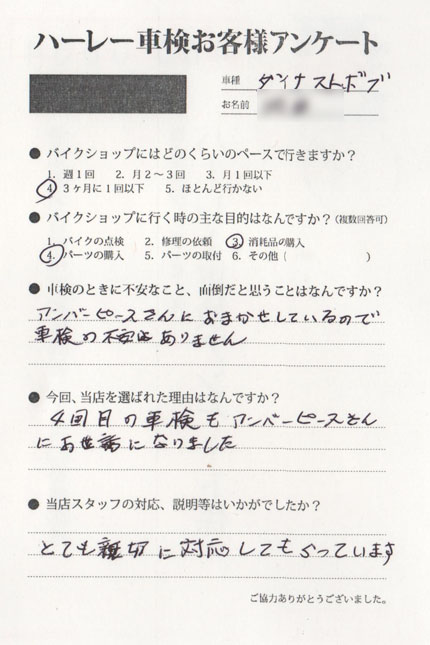 ハーレー車検お客様アンケート
車種 ダイナストボブ
お名前
● バイクショップにはどのくらいのペースで行きますか？
1. 週1回 2. 月2～3回 3. 月1回以下
4. 3ヶ月に1回以下 5. ほとんど行かない
● バイクショップに行く時の主な目的はなんですか？（複数回答可）
1. バイクの点検 2. 修理の依頼 3. 消耗品の購入
4. パーツの購入 5. パーツの取付 6. その他（ ）
● 車検のときに不安なこと、面倒だと思うことはなんですか？
アンバーピースさんにおまかせしているので
車検の不安はありません
● 今回、当店を選ばれた理由はなんですか？
4回目の車検もアンバーピースさん
にお世話になりました
● 当店スタッフの対応、説明等はいかがでしたか？
とても親切に対応してもらっています
ご協力ありがとうございました。